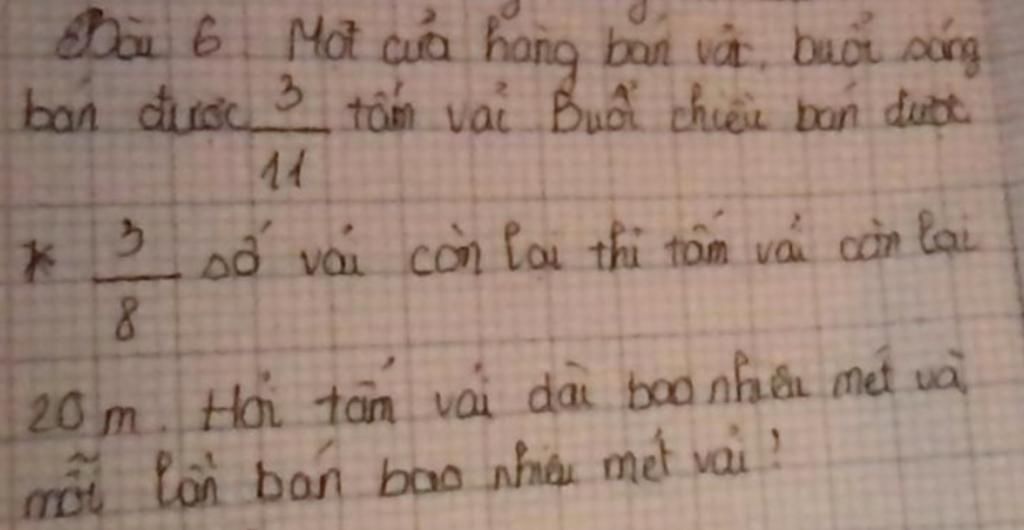 Bài 6 Một cửa hàng bán vải, buổi sáng
bán được 3/11 tấm vải Buổi chiều bán được
* 3/8 số vải còn lại thì tấm vải còn lại
20 m. Hỏi tấm vải dài bao nhiêu mét và
mỗi lần bán bao nhiêu mét vải?